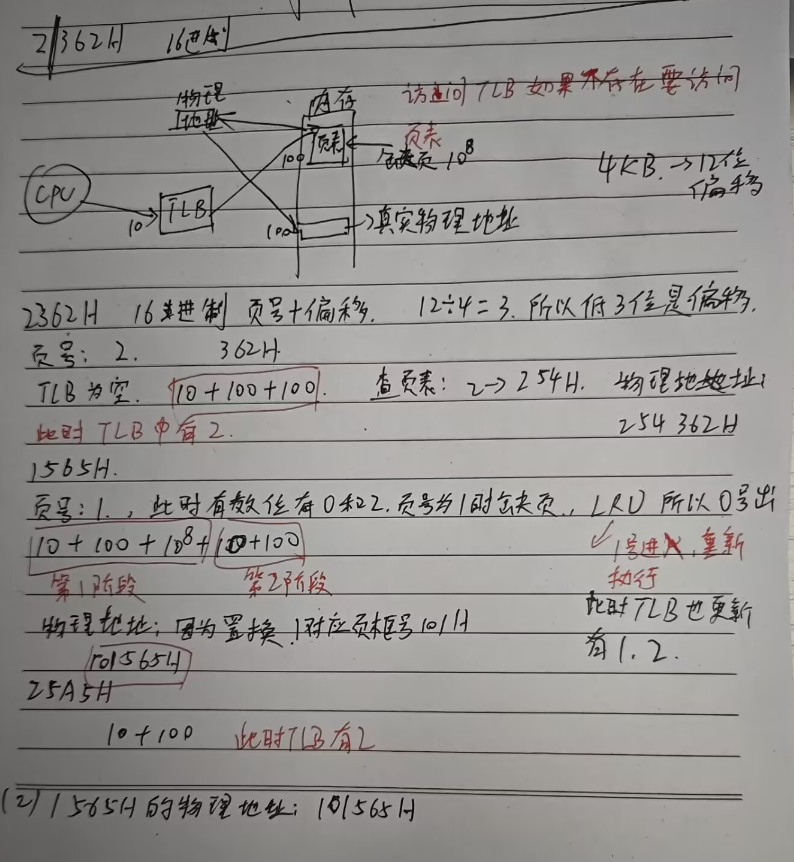 2 362H 16进制
物理
地址
内存
访问TLB如果不存在要访问
页表
页表
100
缺页 10⁸
4KB.→12位
偏移
CPU
10
TLB
100
→真实物理地址
2362H 16进制 页号+偏移. 12÷4=3.所以低3位是偏移.
页号: 2. 362H.
TLB为空. 10+100+100. 查页表: 2→254H. 物理地址:
此时TLB中有2. 254 362H
1565H.
页号:1., 此时有效位有0和2.页号为1时缺页., LRU 所以0号出
10+100+10⁸+ 10+100 1号进入,重新
第1阶段 第2阶段 执行
物理地址:因为置换1对应页框号101H 此时TLB也更新
101565H 有1.2.
25A5H
10+100 此时TLB有2
(2) 1565H的物理地址: 101565H